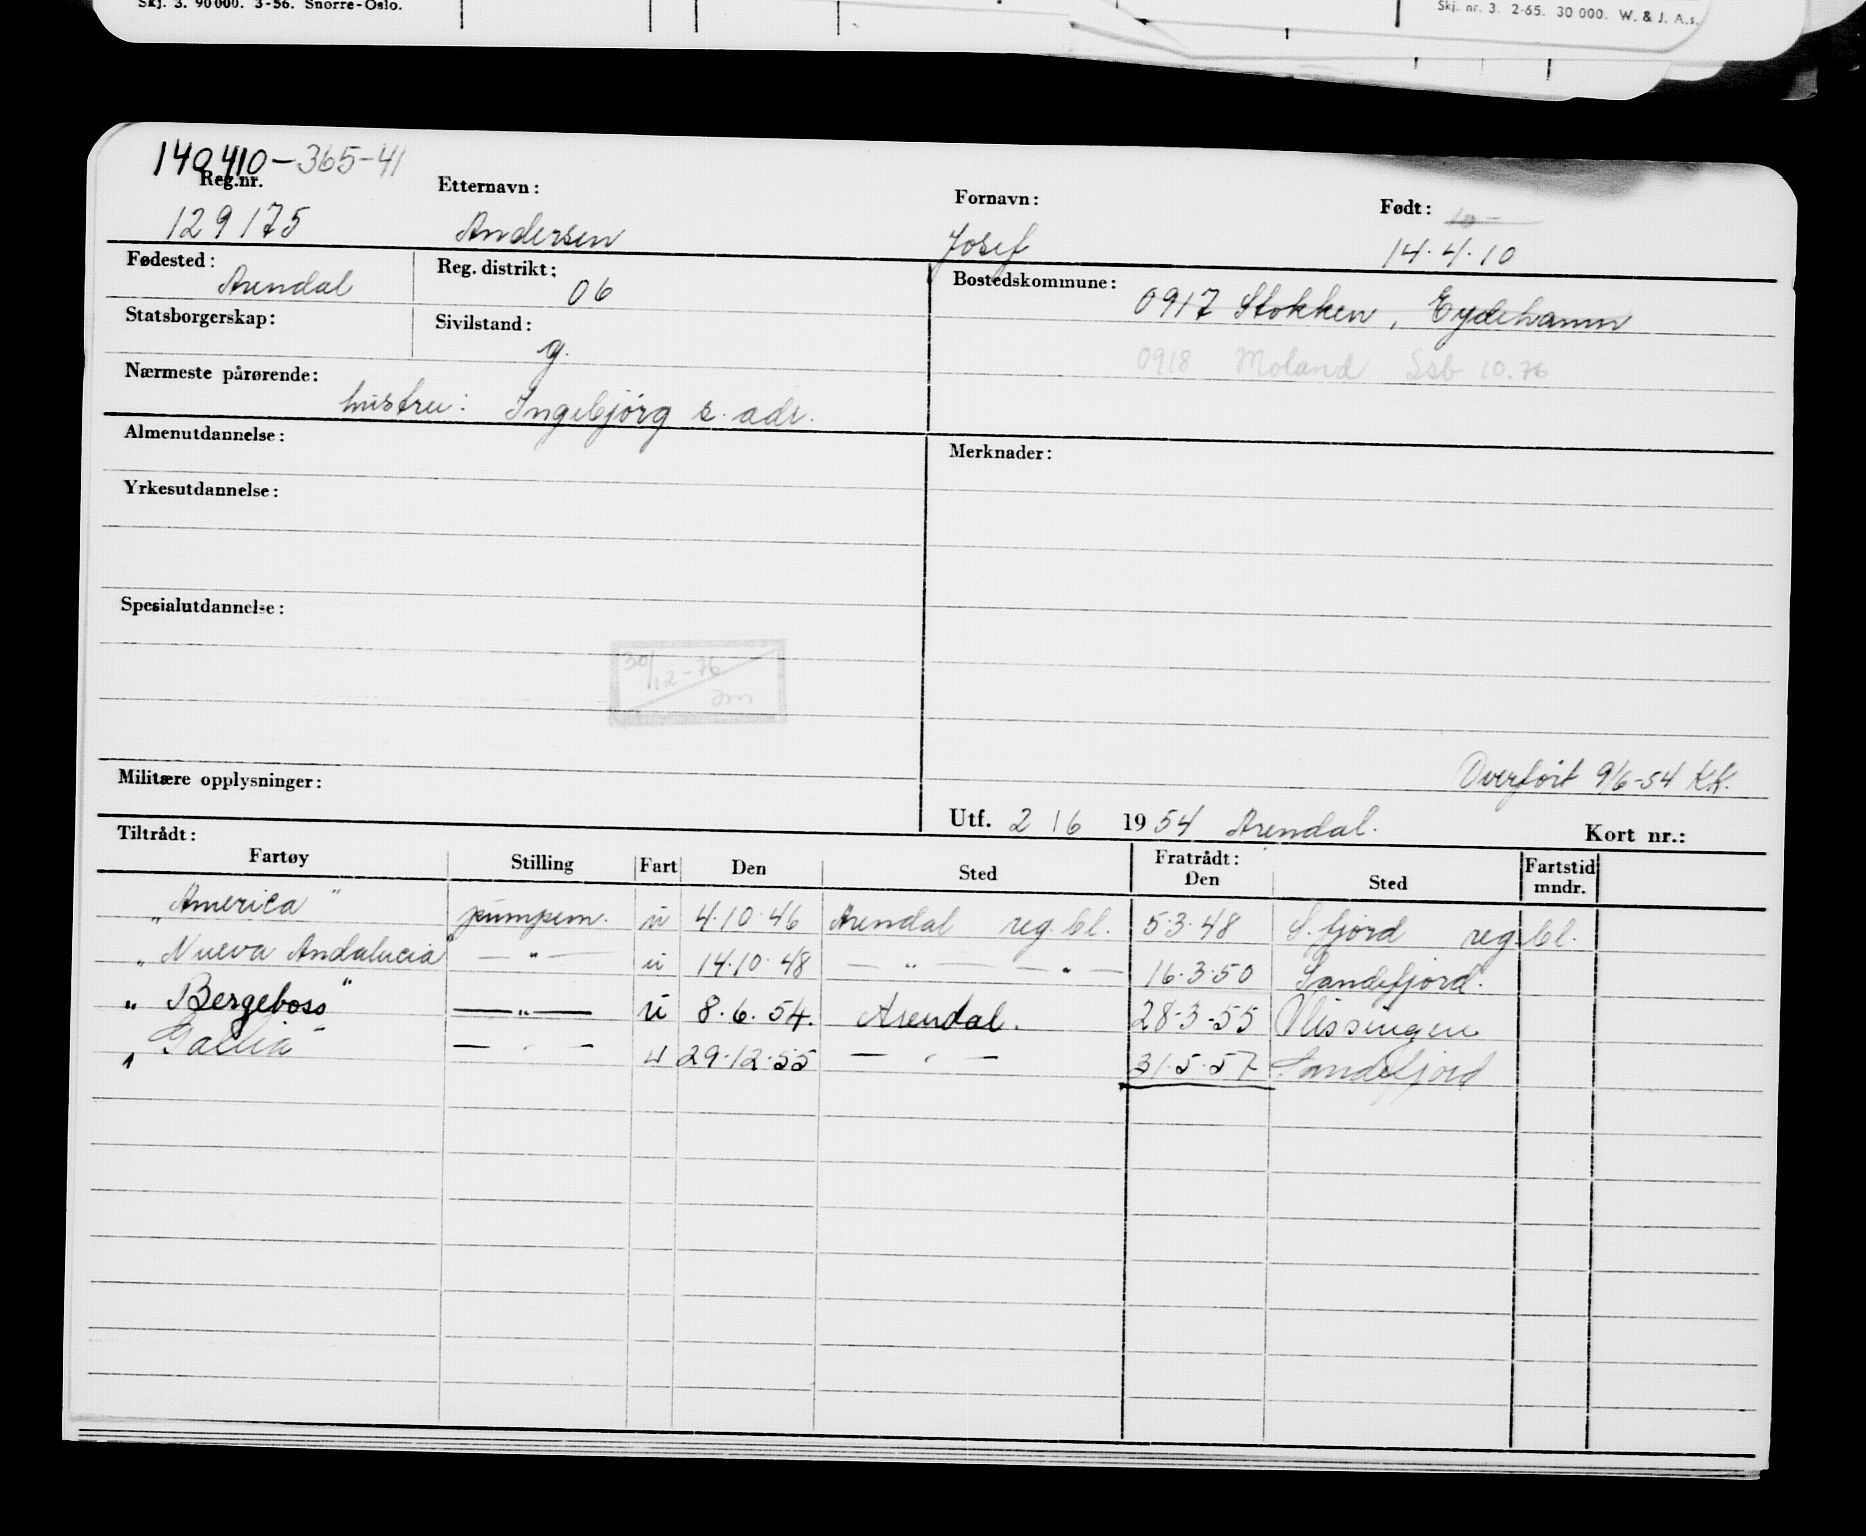 Skj. 3. 90000. 3-56. Snorre-Oslo.
Skj. nr. 3. 2-65. 30 000. W. & J. A.s.
140410-365-41
Reg.nr. Etternavn: Fornavn: Født:
129175 Andersen Josef 14.4.10
Fødested: Arendal Reg. distrikt: 06 Bostedskommune: 0917 Stokken, Eydehamn
Statsborgerskap: Sivilstand: g. 0918 Moland Ssb 10.76
Nærmeste pårørende: hustru: Ingebjørg s. adr.
Almenutdannelse: Merknader:
Yrkesutdannelse:
Spesialutdannelse:
30/12-76
Overført 9/6-54 KK.
Militære opplysninger:
Utf. 2/6 1954 Arendal. Kort nr.:
Tiltrådt: Fratrådt:
Fartøy Stilling Fart Den Sted Den Sted Fartstid mndr.
"America" pumpem. u 4.10.46 Arendal reg.bl. 5.3.48 S.fjord reg.bl.
"Nueva Andalucia" — " — u 14.10.48 — " — — " — 16.3.50 Sandefjord.
"Bergeboss" — " — u 8.6.54. Arendal. 28-3-55 Vlissingen
"Gallia" — " — u 29.12.55 — " — 31.5.57 Sandefjord